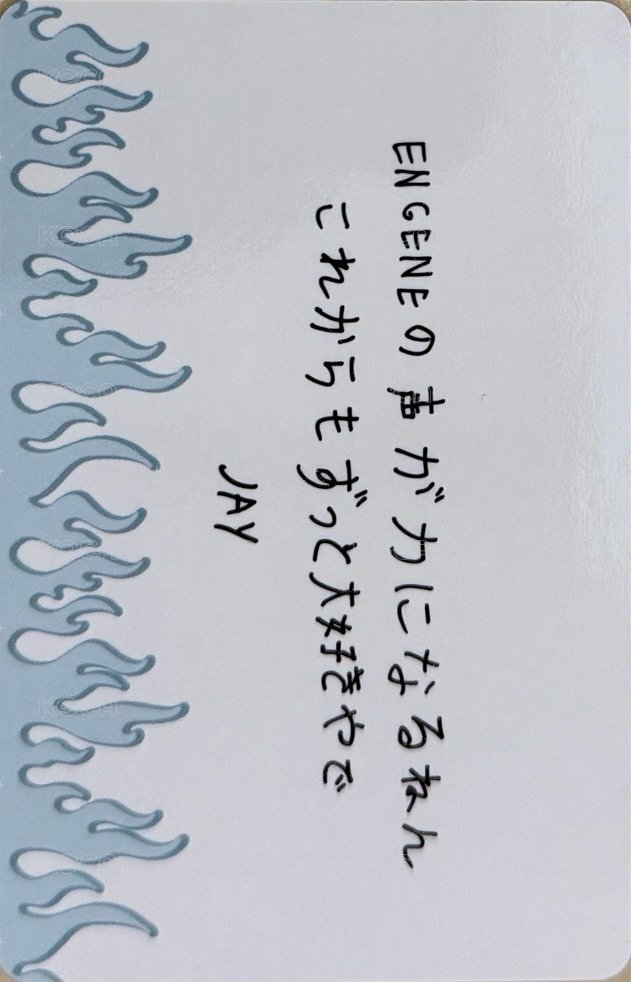 ENGENEの声が力になるねん
これからもずっと大好きやで
JAY
KOCA
KOCA
KOCA
KOCA
KOCA
KOCA